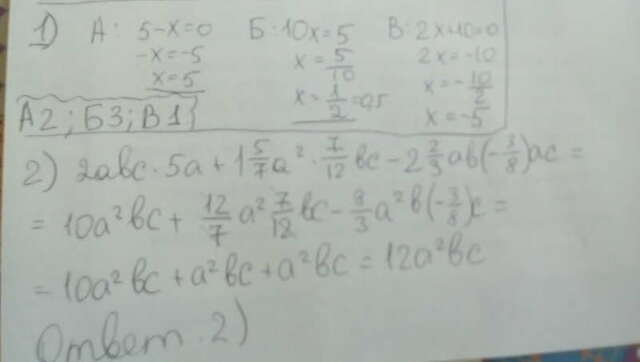 1) А: 5-x=0 Б: 10x=5 В: 2x+10=0
-x=-5 x=5/10 2x=-10
x=5 x=1/2=0,5 x=-10/2
А2; Б3; В1 x=-5
2) 2abc·5a+1 5/7 a²·7/12 bc-2 2/3 ab(-3/8)ac=
=10a²bc+12/7 a² 7/12 bc-8/3 a²b(-3/8)c=
=10a²bc+a²bc+a²bc=12a²bc
Ответ. 2)